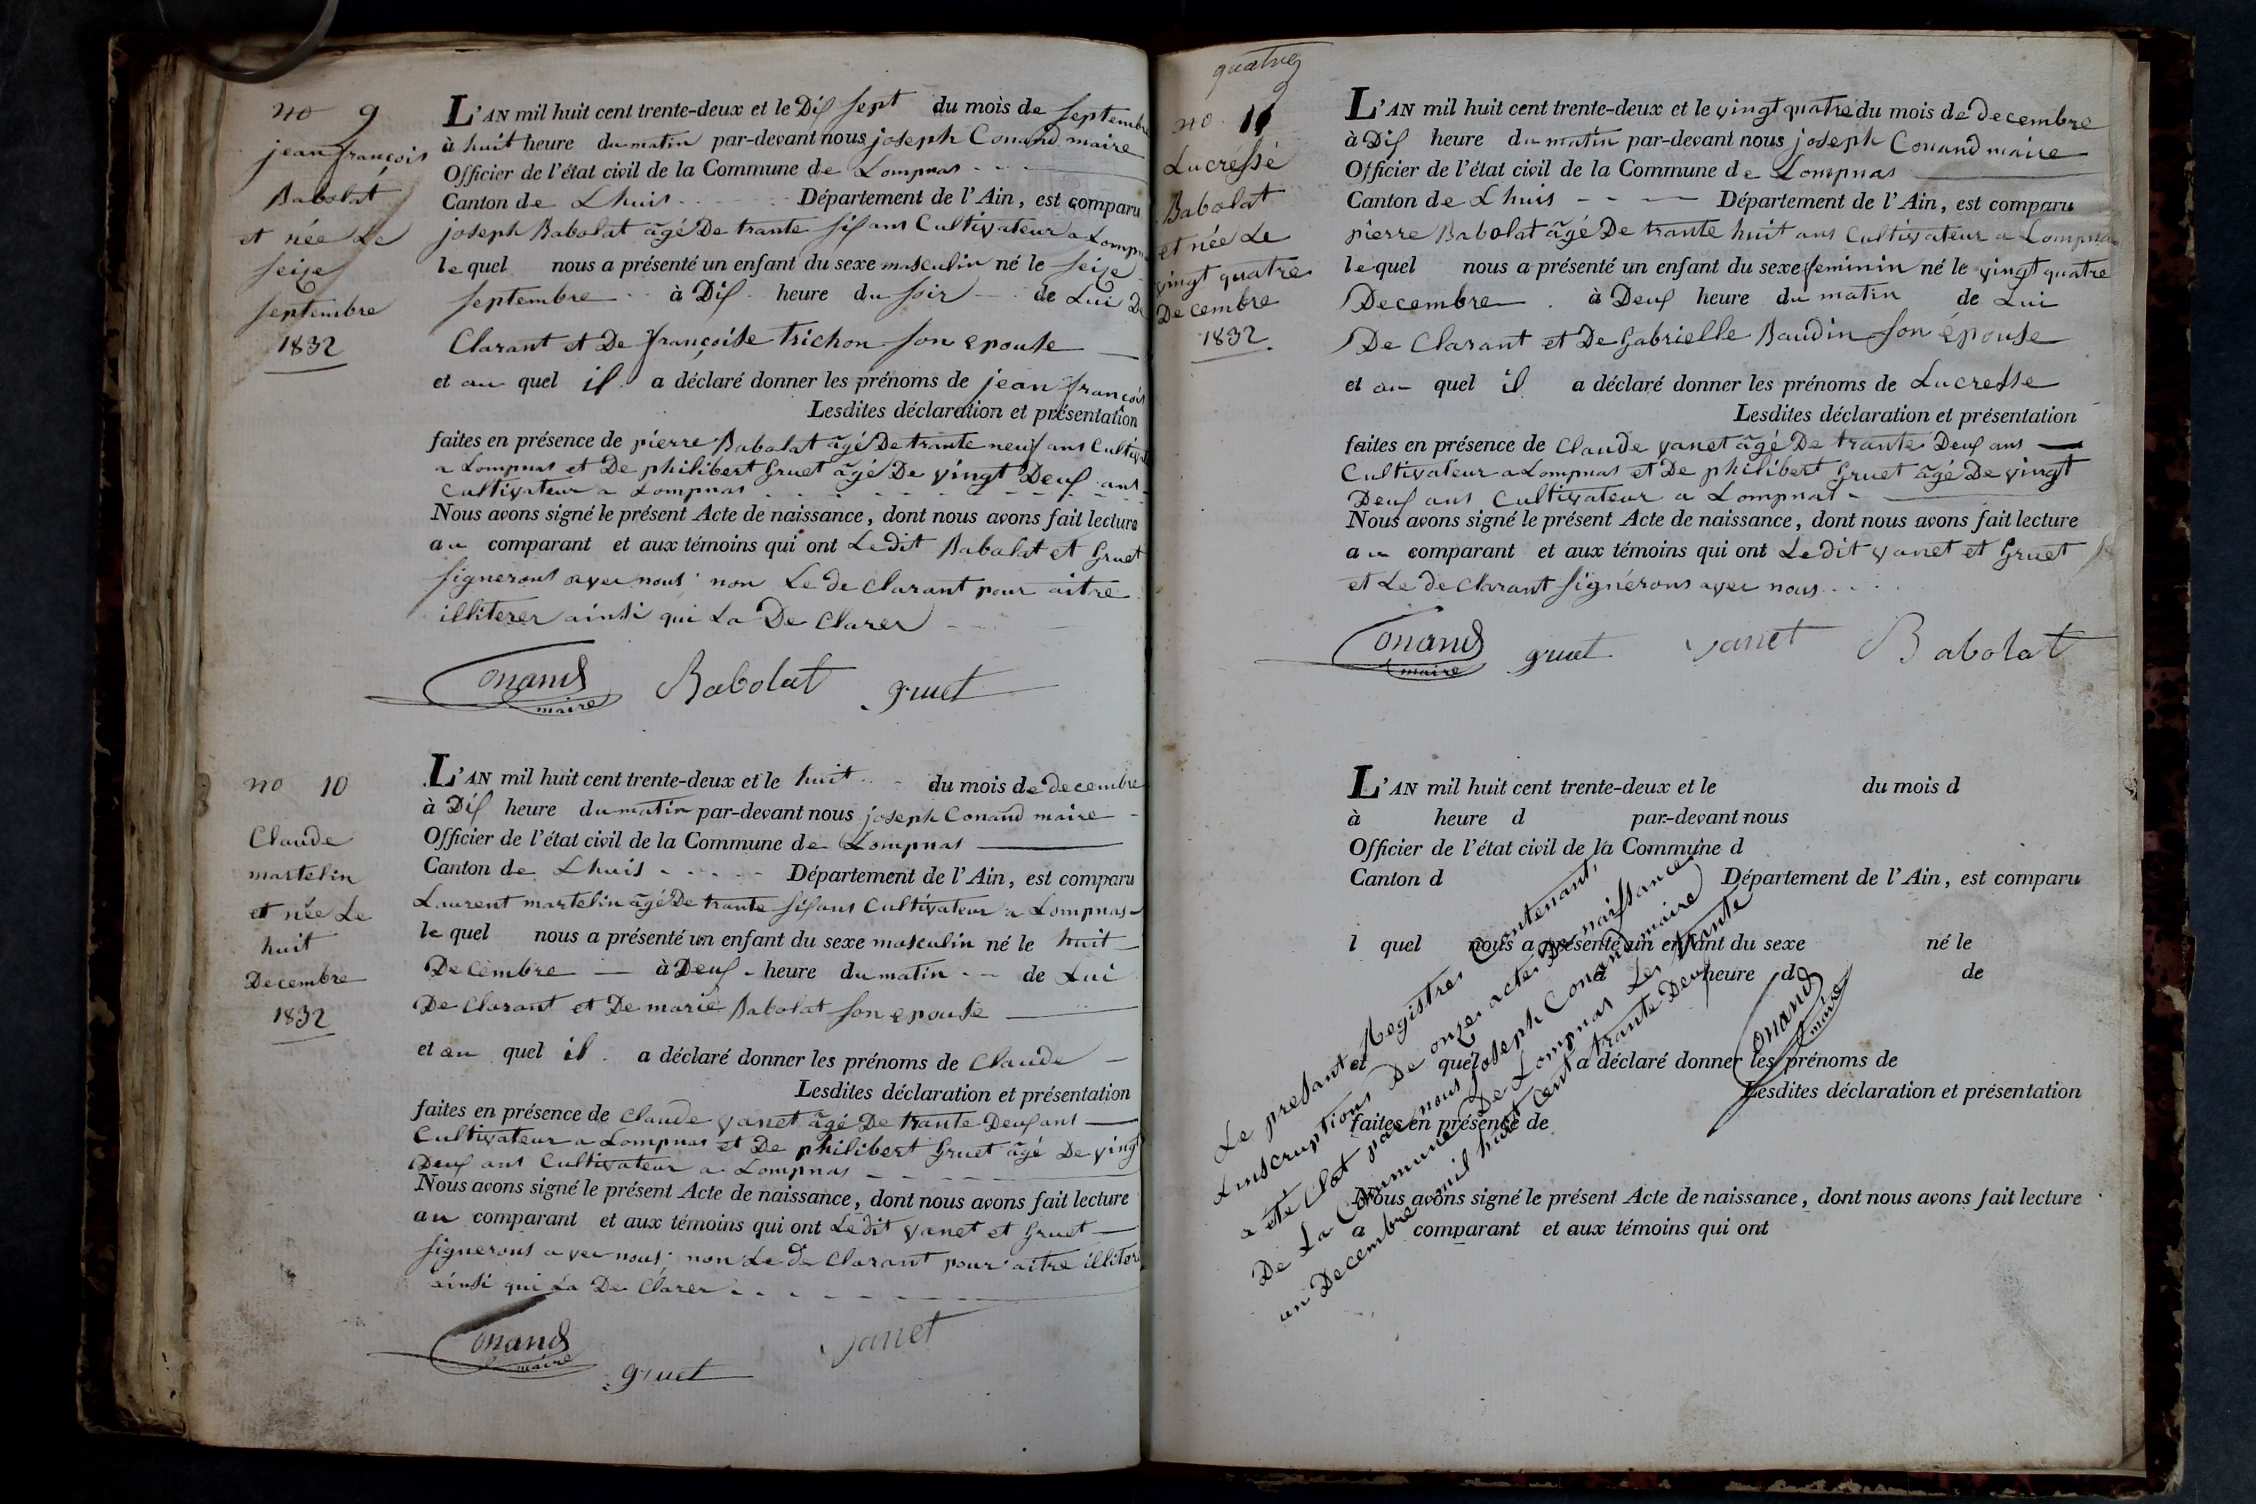 no 9
jean françois
Babolat
et née Le
seize
septembre
1832
L'AN mil huit cent trente-deux et le Dix sept du mois de septembre
à huit heure du matin par-devant nous joseph Conand maire
Officier de l'état civil de la Commune de Lompnas
Canton de Lhuis Département de l'Ain, est comparu
joseph Babolat âgé De trante six ans Cultivateur a Lompnas
le quel nous a présenté un enfant du sexe masculin né le seize
septembre à Dix heure du soir de Lui De
Clarant et De françoise trichon son epouse
et au quel il a déclaré donner les prénoms de jean françois
Lesdites déclaration et présentation
faites en présence de pierre Babolat âgé De trante neuf ans Cultivat
a Lompnas et De philibert Gruet âgé De vingt Deux ans
Cultivateur a Lompnas
Nous avons signé le présent Acte de naissance, dont nous avons fait lecture
au comparant et aux témoins qui ont Ledit Babolat et Gruet
signerons avec nous non Le de Clarant pour aitre
illiterer ainsi qui La De Clarer
Conand maire Babolat gruet
no 10
Claude
martelin
et née Le
huit
Decembre
1832
L'AN mil huit cent trente-deux et le huit du mois de decembre
à Dix heure du matin par-devant nous joseph Conand maire
Officier de l'état civil de la Commune de Lompnas
Canton de Lhuis Département de l'Ain, est comparu
Laurent martelin âgé De trante six ans Cultivateur a Lompnas
le quel nous a présenté un enfant du sexe masculin né le huit
Decembre à Deux heure du matin de Lui
De Clarant et De marie Babolat son epouse
et au quel il a déclaré donner les prénoms de Claude
Lesdites déclaration et présentation
faites en présence de Claude vanet âgé De trante Deux ans
Cultivateur a Lompnas et De philibert Gruet âgé De vingt
Deux ans Cultivateur a Lompnas
Nous avons signé le présent Acte de naissance, dont nous avons fait lecture
au comparant et aux témoins qui ont Ledit vanet et Gruet
signerons avec nous non Le de Clarant pour aitre illiterer
ainsi qui La De Clarer
Conand maire gruet vanet
quatre
no 11
Lucresse
Babolat
et née Le
vingt quatre
Decembre
1832
L'AN mil huit cent trente-deux et le vingt quatre du mois de decembre
à Dix heure du matin par-devant nous joseph Conand maire
Officier de l'état civil de la Commune de Lompnas
Canton de Lhuis Département de l'Ain, est comparu
pierre Babolat âgé De trante huit ans Cultivateur a Lompnas
le quel nous a présenté un enfant du sexe feminin né le vingt quatre
Decembre à Deux heure du matin de Lui
De Clarant et De Gabrielle Baudin son épouse
et au quel il a déclaré donner les prénoms de Lucresse
Lesdites déclaration et présentation
faites en présence de Claude vanet âgé De trante Deux ans
Cultivateur a Lompnas et De philibert Gruet âgé De vingt
Deux ans Cultivateur a Lompnas
Nous avons signé le présent Acte de naissance, dont nous avons fait lecture
au comparant et aux témoins qui ont Ledit vanet et Gruet
et Le de Clarant signérons avec nous
Conand maire gruet vanet Babolat
L'AN mil huit cent trente-deux et le du mois d
à heure d par-devant nous
Officier de l'état civil de la Commune d
Canton d Département de l'Ain, est comparu
l quel nous a présenté un enfant du sexe né le
à heure d de
et quel a déclaré donner les prénoms de
Lesdites déclaration et présentation
faites en présence de
Nous avons signé le présent Acte de naissance, dont nous avons fait lecture
a comparant et aux témoins qui ont
Le presant Registre Contenant
Linscruptions De onze actes De naissance
a été Clot par nous joseph Conand maire
De La Commune De Lompnas Le trante
un Decembre mil huit cent trante Deux
Conand maire